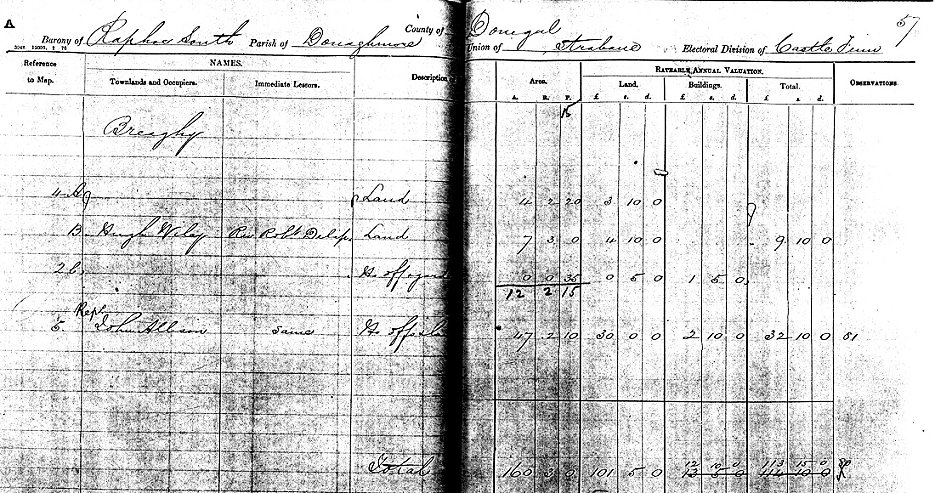 A 57
Barony of Raphoe South Parish of Donaghmore County of Donegal Union of Strabane Electoral Division of Castle Finn
Reference to Map. NAMES. Description Area. RATEABLE ANNUAL VALUATION. OBSERVATIONS
Townlands and Occupiers. Immediate Lessors. Land. Buildings. Total.
A. R. P. £ s. d. £ s. d. £ s. d.
15
Breaghy
4 A Land 4 2 20 3 10 0
B Hugh Wilay Rev Robt Delap Land 7 3 0 4 10 0 9 10 0
2 b Ho offs yard 0 0 35 0 5 0 1 5 0
12 2 15
Rept
5 John Allison same Ho offs & La 47 2 10 30 0 0 2 10 0 32 10 0 51
12 10 0 113 15 0
Total 160 3 0 101 5 0 13 5 0 114 10 0